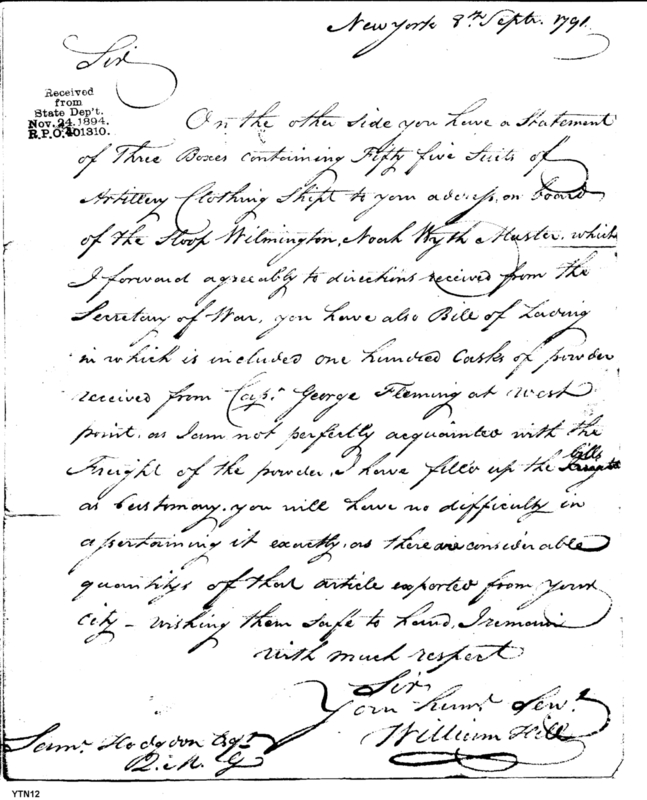 New York 8th Septr. 1791.
Sir
Received
from
State Dep't.
Nov. 24. 1894.
R.P.O. 401310.
On the other side you have a Statement
of Three Boxes containing Fifty five Suits of
Artillery Clothing Shipt to your address, on board
of the Sloop Wilmington, Noah Wyth Master, which
I forward agreeably to directions received from the
Secretary of War, you have also Bill of Lading
in which is included one hundred Casks of powder
received from Capt. George Fleming at West
point, as I am not perfectly acquainted with the
Freight of the powder, I have fill'd up the Bills
as Customary. you will have no difficulty in
assertaining it exactly, as there are considerable
quantitys of that article exported from your
City - wishing them safe to hand, I remain
with much respect
Sir
Your humr. Servt.
William Hill
Saml. Hodgdon Esqr.
Q. M. G
YTN12